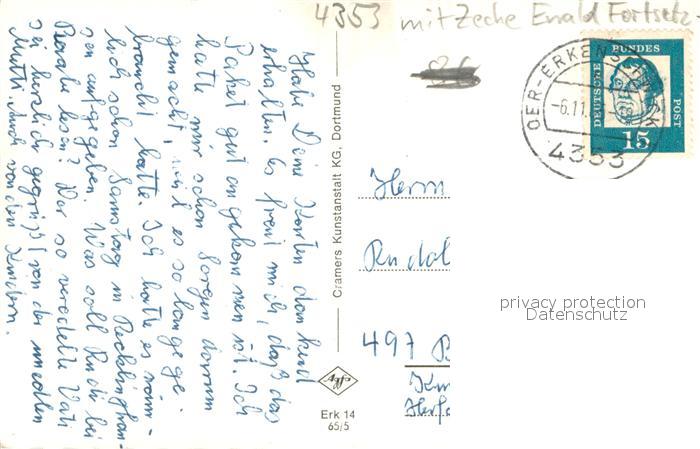 4353 mit Zeche Ewald Fortsetz.
Habe Deine Karten dankend
erhalten. Es freut mich, daß das
Paket gut angekommen ist. Ich
hatte mir schon Sorgen darum
gemacht, weil es so lange ge-
braucht hatte. Ich hatte es näm-
lich schon Samstag in Recklinghau-
sen aufgegeben. Was soll Rudi bei
lesen? Der so veredelte Vati
sei herzlich gegrüßt von der unedlen
Mutti und von den Kindern.
Cramers Kunstanstalt KG, Dortmund
Agfa
Erk 14
65/5
OER-ERKENSCHWICK
-6.11.
4353
DEUTSCHE
BUNDES
POST
15
Herrn
Rudol
497 B
privacy protection
Datenschutz